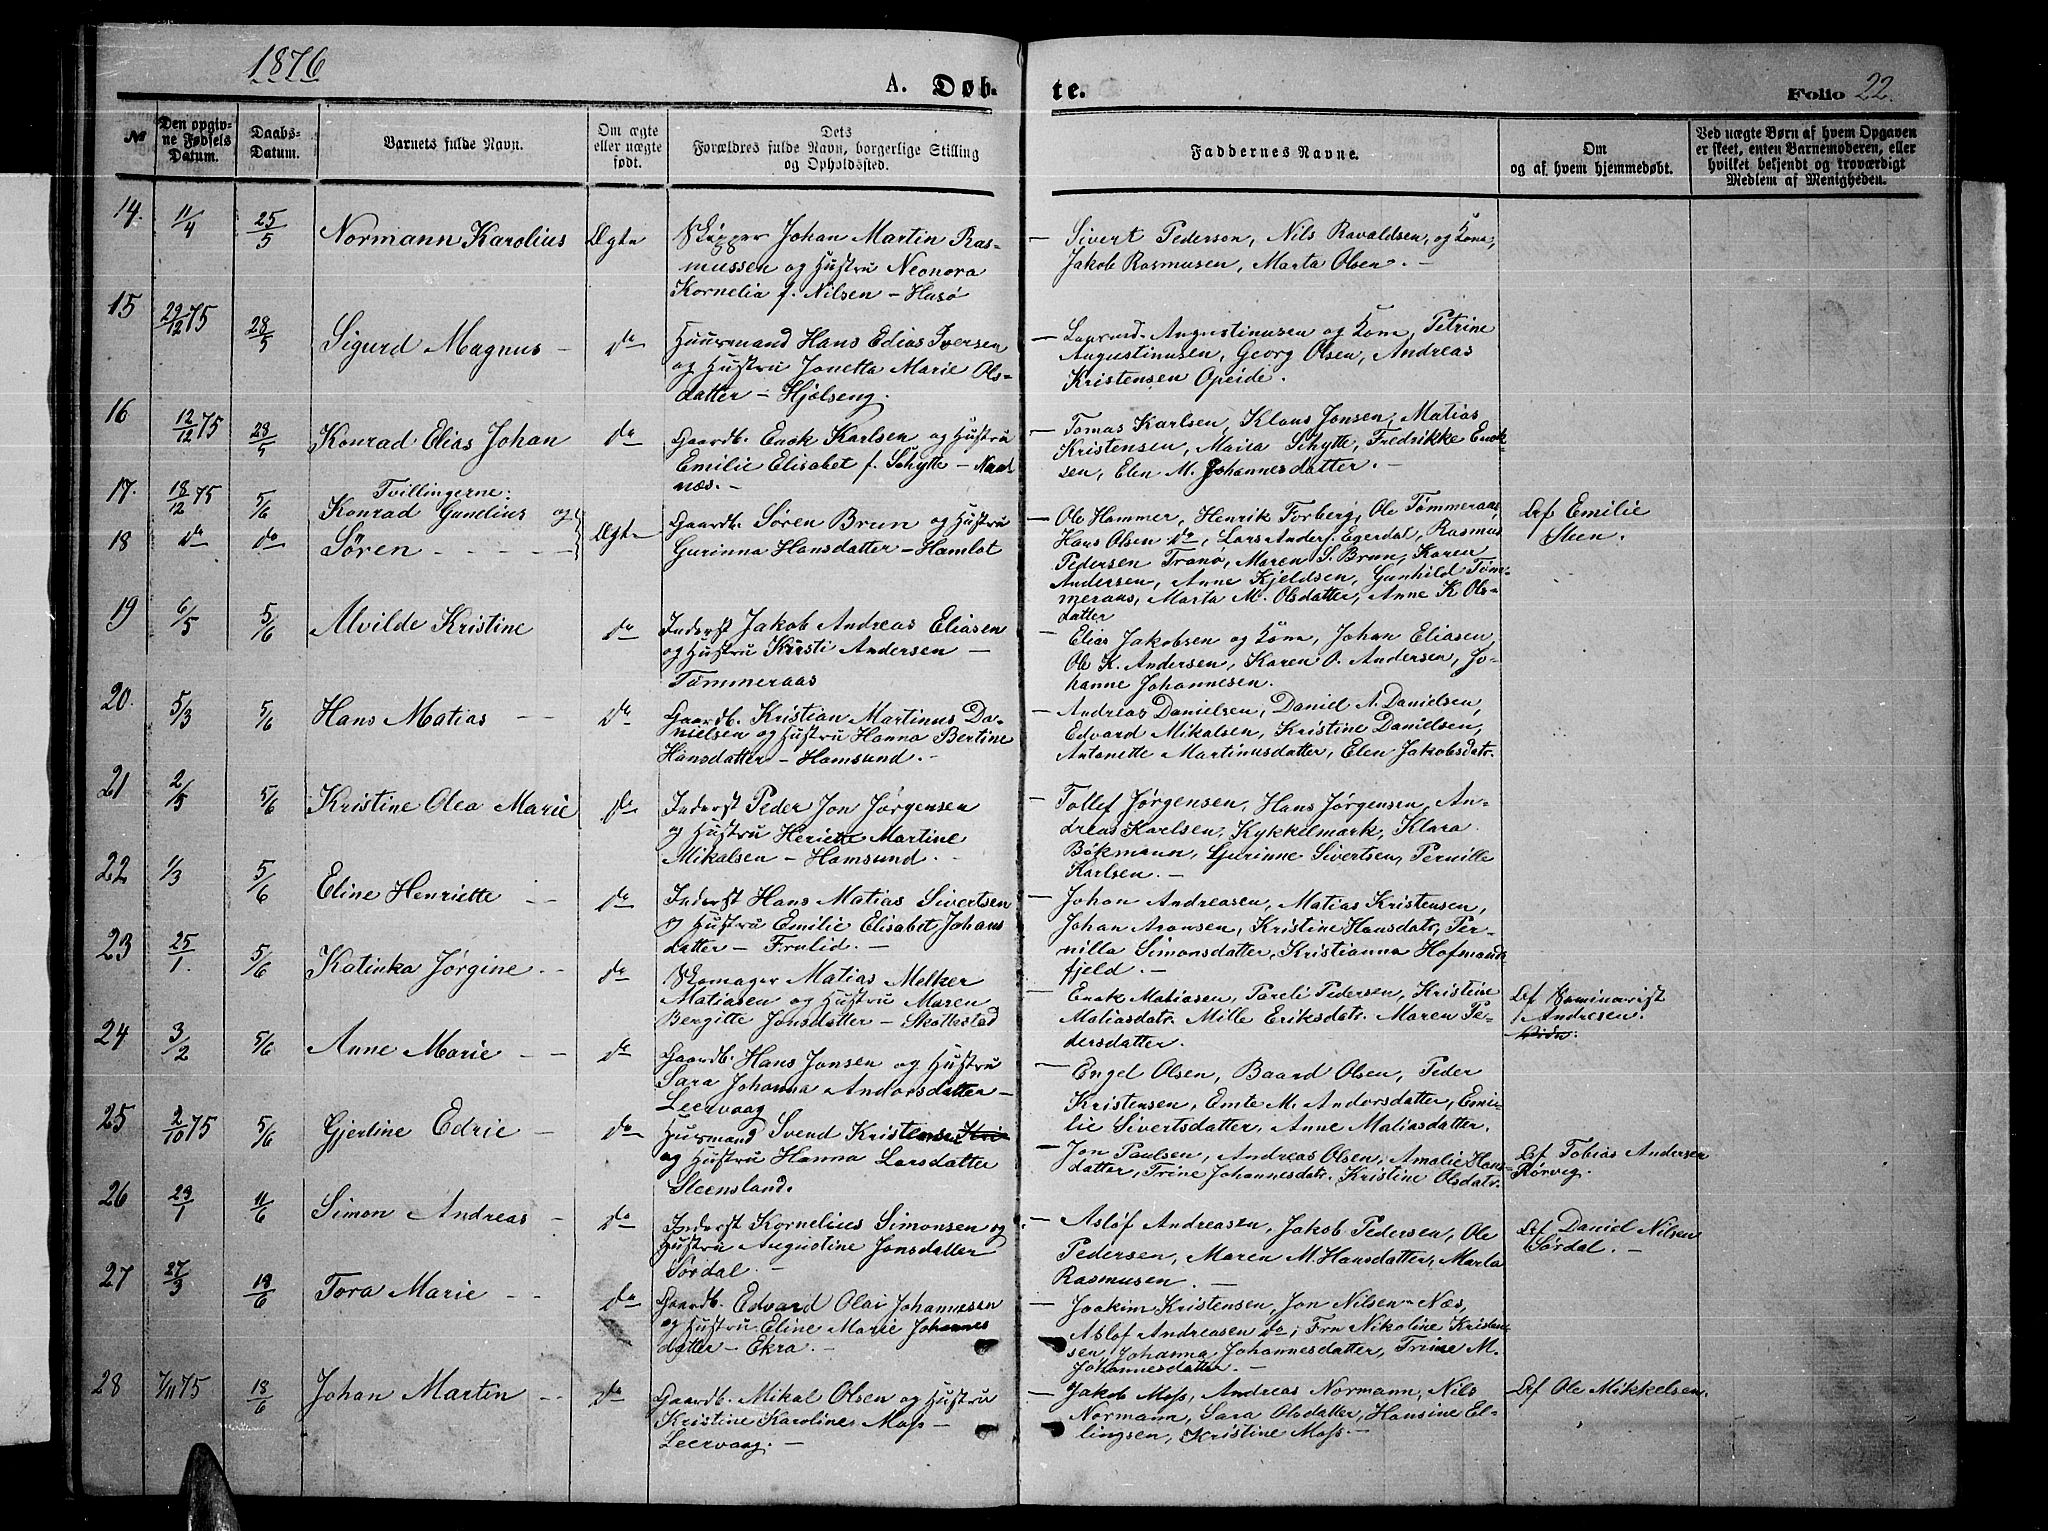 1876
A. Døb-
te.
Folio 22.
No
Den opgiv-
ne Fødsels
Datum.
Daabs-
Datum.
Barnets fulde Navn.
Om ægte
eller uægte
født.
Dets
Forældres fulde Navn, borgerlige Stilling
og Opholdssted.
Faddernes Navne.
Om
og af hvem hjemmedøbt.
Ved uægte Børn af hvem Opgaven
er skeet, enten Barnemoderen, eller
hvilket bekjendt og troværdigt
Medlem af Menigheden.
14. 11/4 25/5 Normann Karolius Ægte
Skipper Johan Martin Ras-
mussen og Hustru Neonora
Kornelia f. Nilsen – Husø
– Sivert Pederson, Nils Ravaldsen, og Kone,
Jakob Rasmusen, Marta Olsen. –
15 29/12 75 28/5 Sigurd Magnus – do
Huusmand Hans Edias Iversen
og Hustru Jonetta Marie Ols-
datter – Hjelseng.
Augustinusen og Kone, Petrine
Augustinusen, Georg Olsen, Andreas
Kristensen Opeide.
16 12/12 75 28/5 Konrad Elias Johan do
Gaardb. Enok Karlsen og Hustru
Emilie Elisabet f. Schytte –
næs. –
– Tomas Karlsen, Klaus Jonsen, Matias
Kristensen, Maria Schytte, Fredrikke Enok-
sen, Elen M. Johannesdatter. –
17. 18/12 75 5/6 Tvillingerne:
Konrad Gunelius og
18 do do Søren – – – – – Ægte
Gaardb. Søren Brun og Hustru
Gurinna Hansdatter – Hamlot
– Ole Hammer, Henrik Forberg, Ole Tømmeraas,
Hans Olsen do, Lars Anders. Egerdal, Rasmus
Pedersen Tranø, Maren S. Brun, Karen
Andersen, Anne Kjeldsen, Gunhild Tøm-
meraas, Marta M. Olsdatter, Anne K Ols-
datter
Af Emilie
Steen.
19 6/5 5/6 Alvilde Kristine do
Inderst Jakob Andreas Eliasen
og Hustru Kirsti Andersen –
Tømmeraas
– Elias Jakobsen og Kone, Johan Eliasen,
Ole K. Andersen, Karen O. Andersen, Jo-
hanne Johannesen.
20. 5/3 5/6 Hans Matias – – do
Gaardb. Kristian Martinus Da-
nielsen og Hustru Hanna Bertine
Hansdatter – Hamsund. –
– Andreas Danielsen, Daniel A. Danielsen,
Edvard Mikalsen, Kristine Danielsen,
Antonette Martinusdatter, Elen Jakobsdatr.
21 2/5 5/6 Kristine Olea Marie do
Inderst Peder Jon Jørgensen
og Hustru Heriette Martine
Mikalsen – Hamsund. –
– Tollef Jørgensen, Hans Jørgensen, An-
dreas Karlsen, Kykkelmark, Klara
Bøkmann, Gjurinne Sivertsen, Pernille
Karlsen. –
22 1/3 5/6 Eline Henriette – – do
Inderst Hans Matias Sivertsen
og Hustru Emilie Elisabet Johans
datter – Frulid. –
– Johan Andreasen, Matias Kristensen,
Johan Aronsen, Kristine Hansdatr, Per-
nilla Simonsdatter, Kristianna Hofmand-
fjeld. –
23 25/1. 5/6 Katinka Jørgine. – – do
Skomager Matias Melker
Matiasen og Hustru Maren
Bergitte Jonsdatter – Skotkstad
– Enok Matiasen, Pareli Pedersen, Kristine
Matiasdatr. Mille Eriksdatr. Maren Pe-
dersdatter. –
Af Seminarist
Andresen.
24 3/2 5/6 Anne Marie – – do
Gaardb. Hans Jonsen og Hustru
Sara Johanna Andorsdatter –
Leervaag
– Engel Olsen, Baard Olsen, Peder
Kristensen, Emte M. Andorsdatter, Emi-
lie Sivertsdatter, Anne Matiasdatter.
25 2/10 75 5/6 Gjertine Edrie – do
Huusmand Svend Kristensen
og Hustru Hanna Larsdatter
Steensland.
– Jon Paulsen, Andreas Olsen, Amalie Hans-
datter, Trine Johannesdatr. Kristine Olsdatr.
Af Tobias Andersen
Rørvig.
26 23/1 11/6 Simon Andreas – do
Inderst Kornelius Simonsen og
Hustru Augustine Jonsdatter
Sørdal –
– Asløf Andreasen, Jakob Pedersen, Ole
Pedersen, Maren M. Hansdatter, Marta
Rasmusen. –
Af Daniel Nilsen
Sørdal. –
27 27/3 18/6 Tora Marie – – do
Gaardb. Edvard Olai Johannesen
og Hustru Eline Marie Johannes
datter – Ekra. –
– Joakim Kristensen, Jon Nilsen – Næs,
Asløf Andreasen do; Fru Nikoline Kristen-
sen, Johanna Johannesdatter, Trine M.
Johannesdatter. –
28 7/11 75 18/6 Johan Martin – – do
Gaardb. Mikal Olsen og Hustru
Kristine Karoline Moss –
Leervaag. –
– Jakob Moss, Andreas Normann, Nils
Normann, Sara Olsdatter, Hansine El-
lingsen, Kristine Moss. –
Af Ole Mikkelsen.